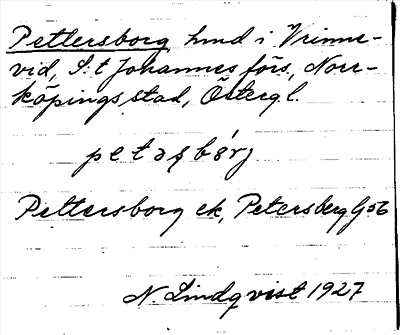 Pettersborg hmd i Vrinne-
vid, S:t Johannes förs., Norr-
köpings stad, Östergl.
Pettersborg ek, Petersberg Gj 56
N. Lindqvist 1927